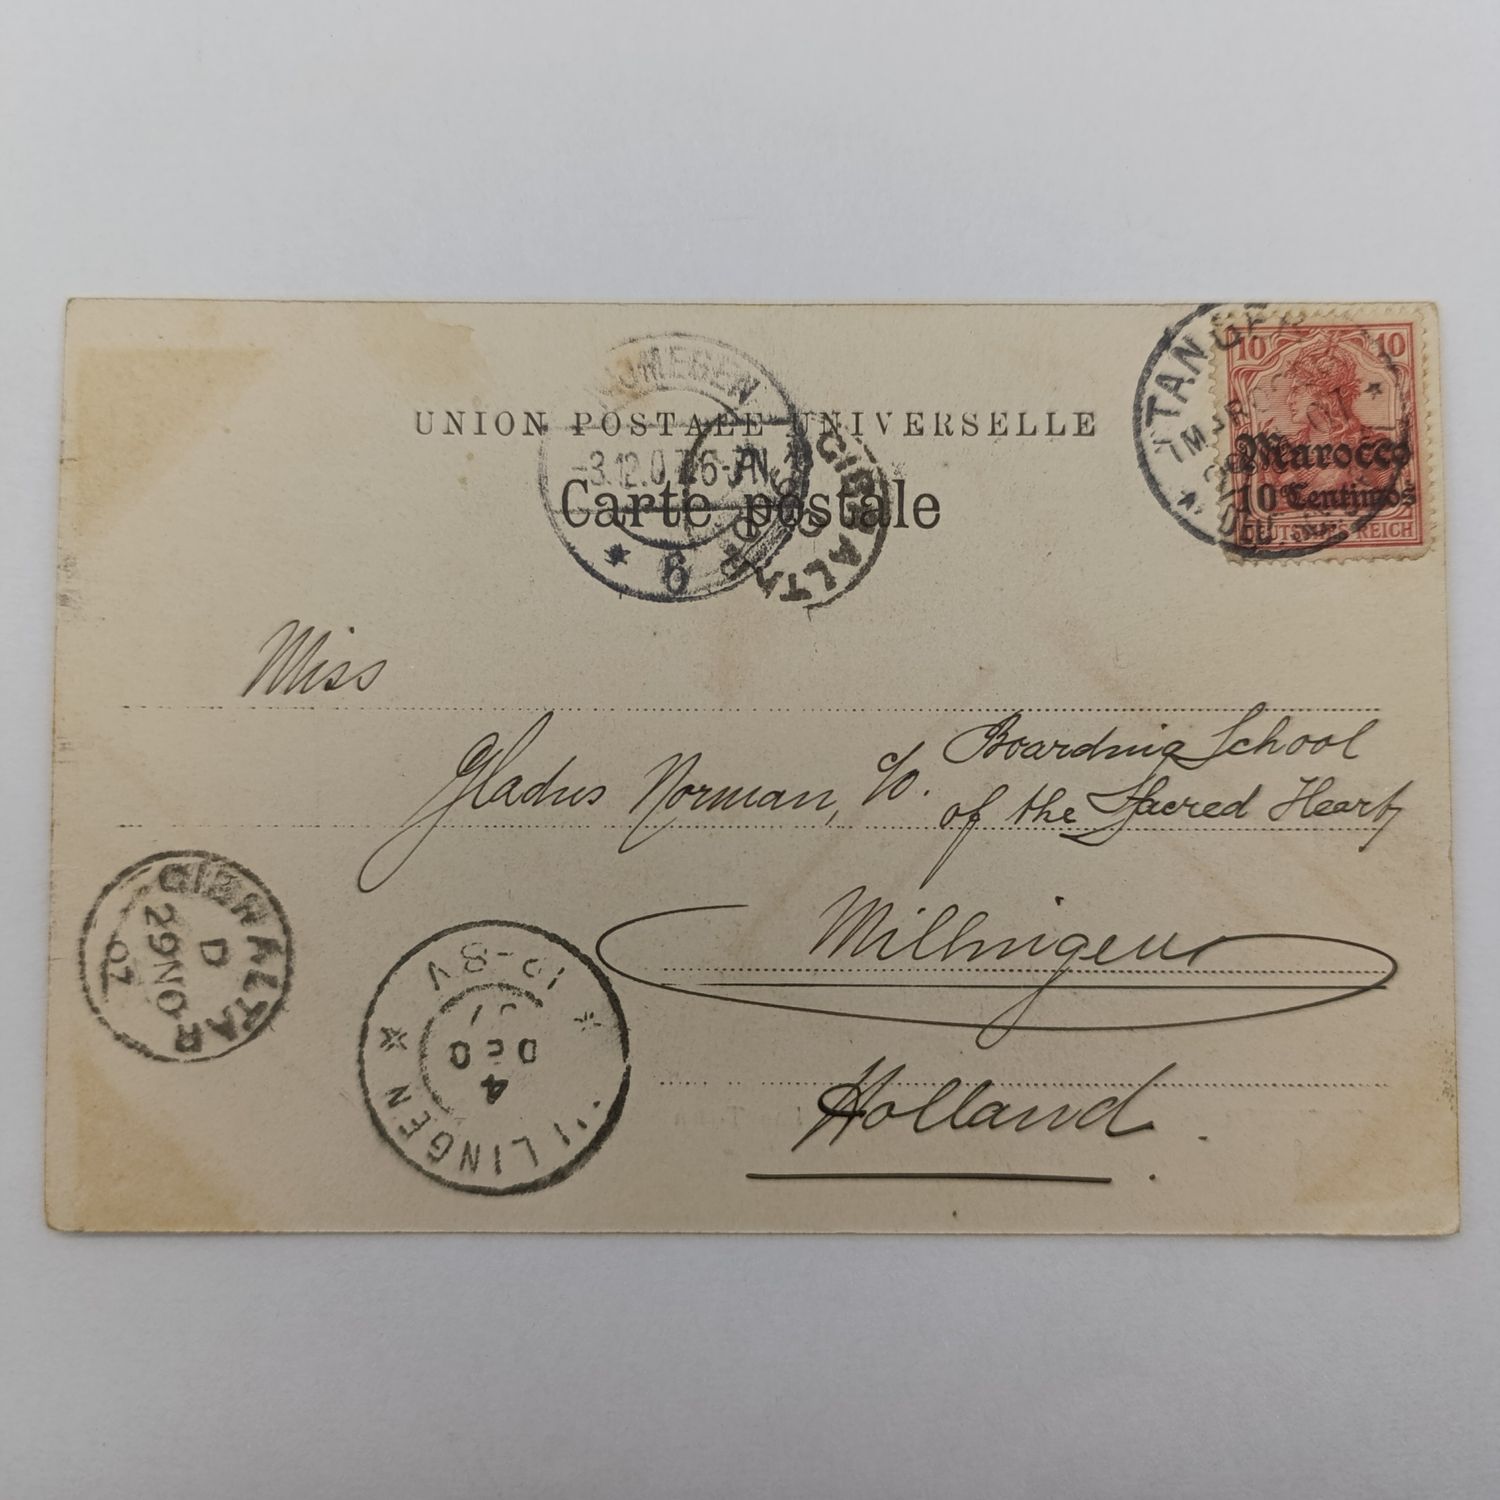 UNION POSTALE UNIVERSELLE
Carte postale
NIJMEGEN
-3.12.07.6-7N
6
GIBRALTAR
TANGER
10 10
Marocco
10 Centimos
DEUTSCHES REICH
Miss
Gladus Norman, c/o. Boarding School
of the Sacred Heart
Millingen
Holland.
GIBRALTAR
D
29 NO
07
MILLINGEN
4
DEC
07
10-8V